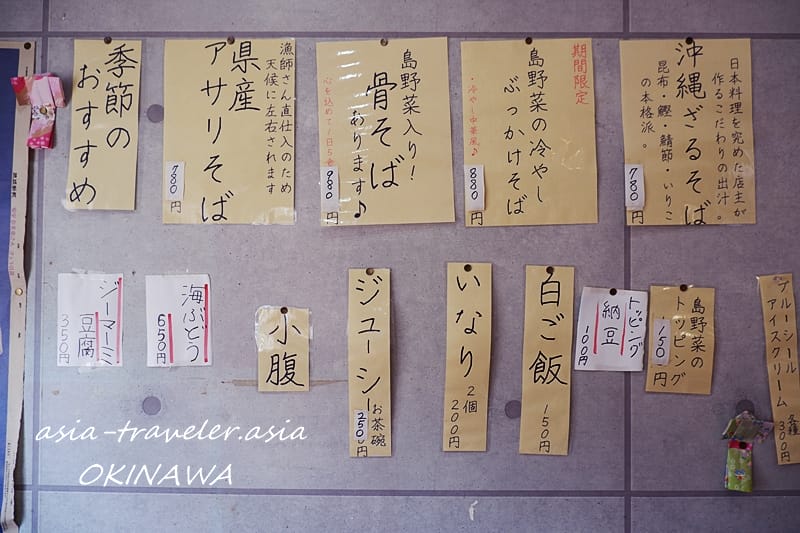 日本料理を究めた店主が
作るこだわりの出汁。
沖縄ざるそば
昆布・鰹・鯖節・いりこ
の本格派。
780円
期間限定
島野菜の冷やし
ぶっかけそば
・冷やし中華風♪
880円
島野菜入り！
骨そば
あります♪
心を込めて1日5食
980円
漁師さん直仕入のため
天候に左右されます
県産
アサリそば
780円
季節の
おすすめ
ブルーシール
アイスクリーム
各種
300円
島野菜の
トッピング
150円
トッピング
納豆
100円
白ご飯
150円
いなり
2個
200円
ジューシー
お茶碗
250円
小腹
海ぶどう
650円
ジーマーミ
豆腐
350円
asia-traveler.asia
OKINAWA